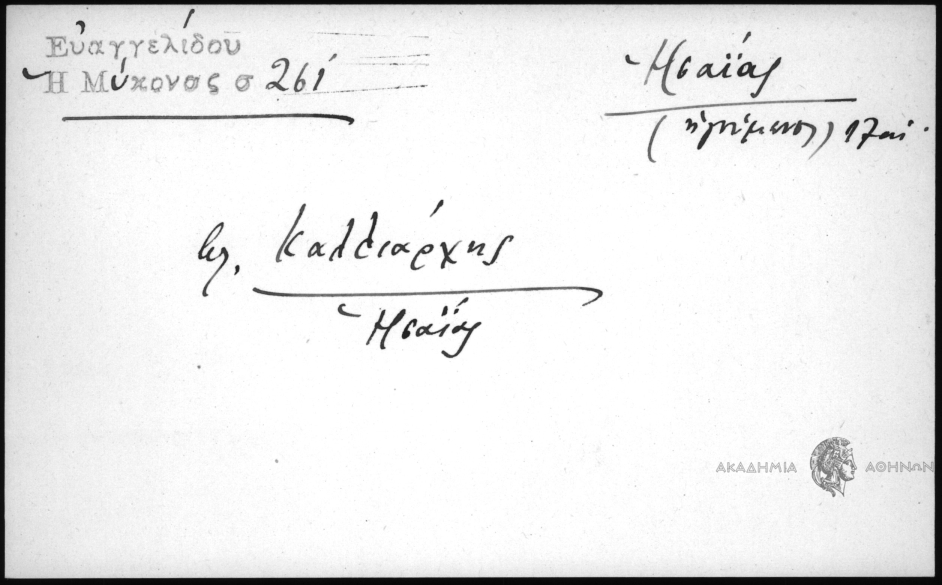 Εὐαγγελίδου
Ἡ Μύκονος σ 261
Ἡσαΐας
(ἡγούμενος) 17 αἰ.
βλ. Καλλιάρχης
Ἡσαΐας
ΑΚΑΔΗΜΙΑ ΑΘΗΝΩΝ